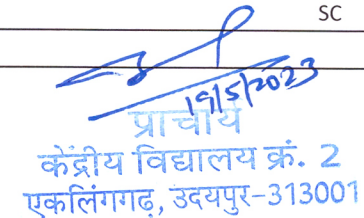 SC
19/5/2023
प्राचार्य
केंद्रीय विद्यालय क्रं. 2
एकलिंगगढ़, उदयपुर-313001